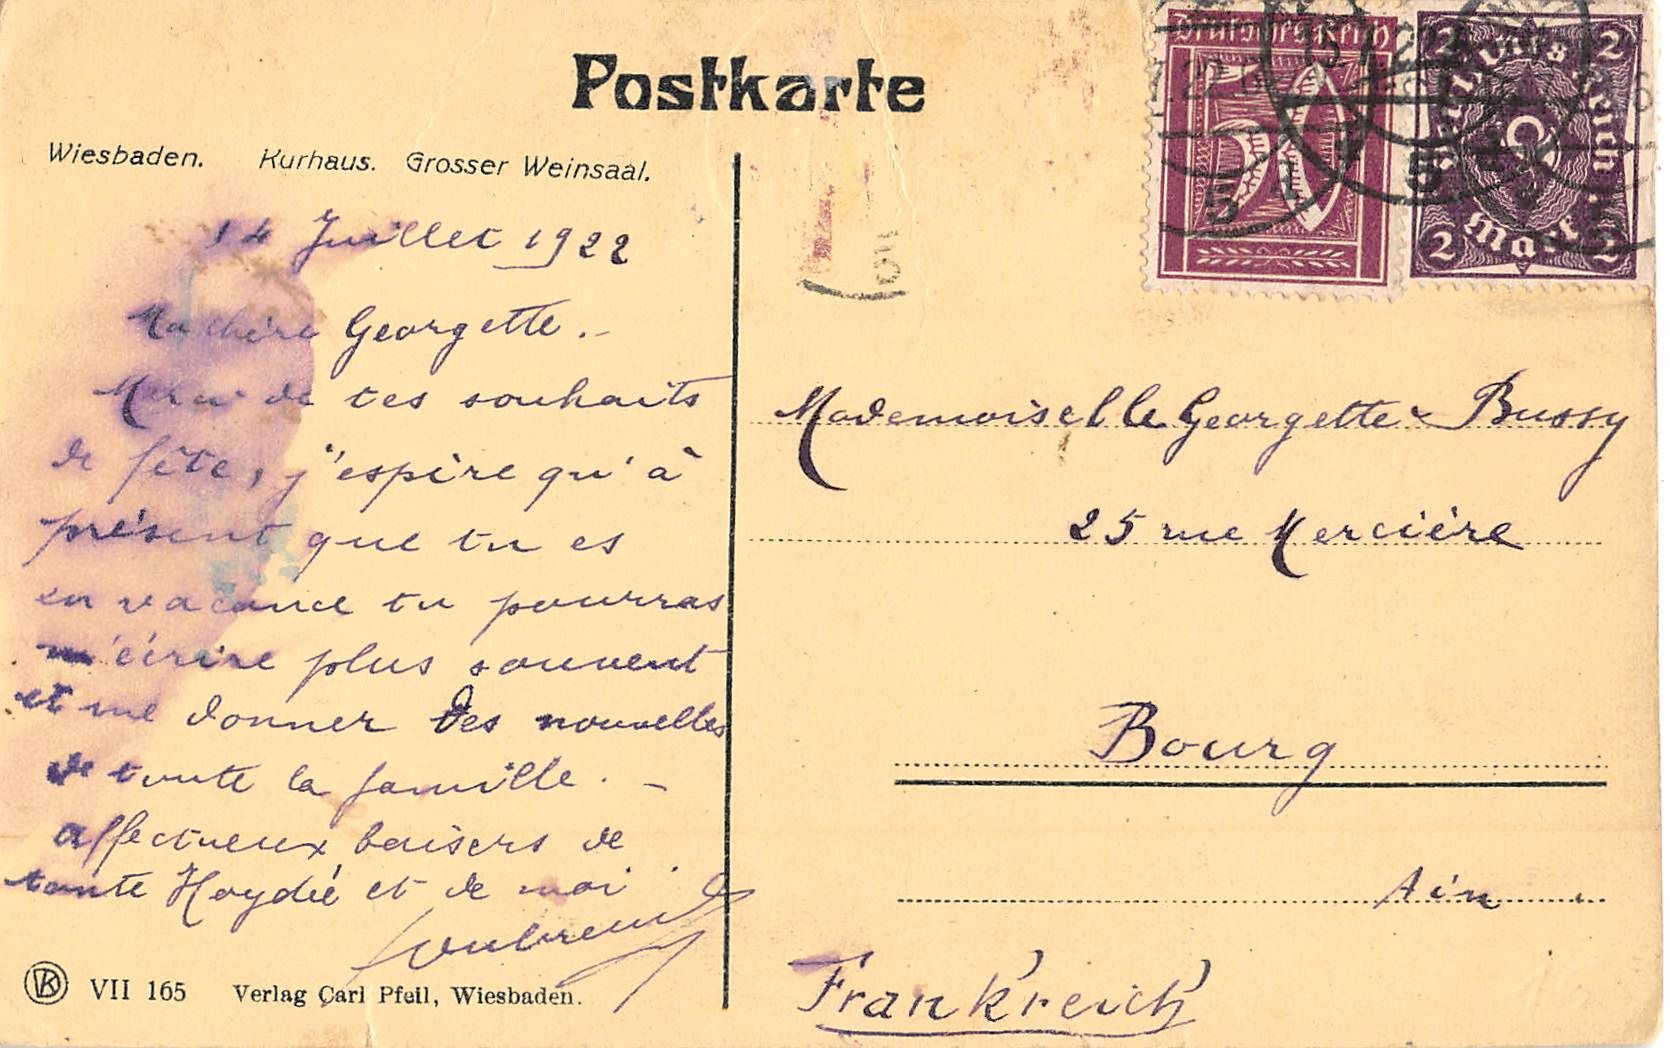 Postkarte
Wiesbaden. Kurhaus. Grosser Weinsaal.
14 Juillet 1922
Ma chère Georgette.-
Merci de tes souhaits
de fête, j'espère qu'à
présent que tu es
en vacance tu pourras
m'écrire plus souvent
et me donner des nouvelles
de toute la famille. -
affectueux baisers de
tante Haydié et de moi
VK VII 165 Verlag Carl Pfeil, Wiesbaden.
Deutsches Reich
50
2 2
Deutsches Reich
Mark
2 2
Mademoiselle Georgette Bussy
25 rue Mercière
Bourg
Ain
Frankreich